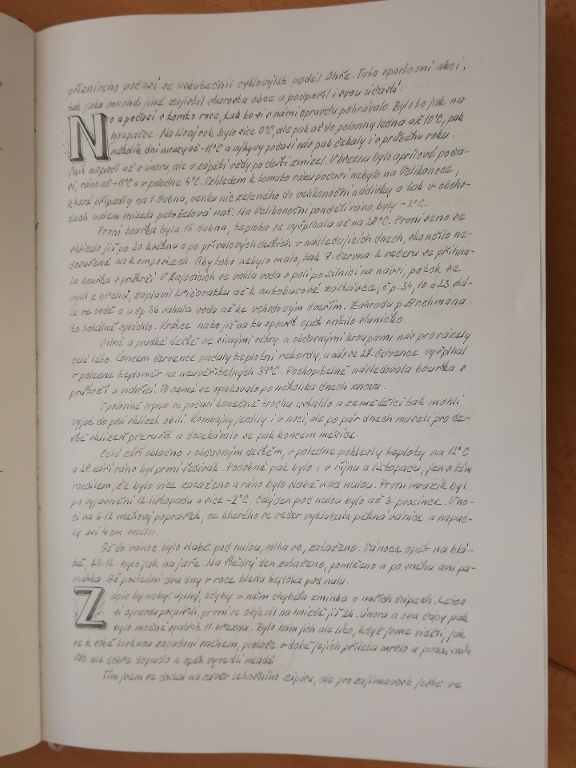 příznivého počasí se uskutečnil cyklovýlet podél Ohře. Tuto sportovní akci,
tak jako mnohdy jiné zajistil starosta obce a podpořil i svou účastí.
No a počasí v tomto roce, tak to si v námi opravdu pohrávalo. Bylo to jak na
houpačce. Na Nový rok bylo více 0°C, ale pak až do poloviny ledna až 10°C, pak
několik dní mrazy až -11°C a výkyvy počasí nás pak čekaly i v průběhu roku.
Sníh napadl až v únoru, ale v zápětí vždy po dešti zmizel. V březnu bylo aprílové poča-
sí, ráno až -11°C a v poledne 4°C. Vzhledem k tomuto rázu počasí nebylo na Velikonoce,
které připadly na 1. dubna, venku nic zeleného do velikonoční nádivky a tak v obcho-
dech všem mizela petrželová nať. Na Velikonoční pondělí ráno, byly -2°C.
První bouřka byla 16. dubna, teplota se vyšplhala až na 28°C. První seno se
sklízelo již po 20. květnu a po přívalových deštích v následujících dnech, skončilo ne-
dosušené na kompostech. Aby toho nebylo málo, tak 9. června k večeru se přihna-
la bouřka s průtrží. V Zajačicích se valila voda s polí po silnici na náves, potok se
vylil z břehů, zaplavil křižovatku až k autobusové zastávce, čp. 34, 10 a 23 stá-
la ve vodě a u čp 36 sahala voda až ke vchodovým dveřím. Zahradu p. Brchmana
to totálně spláchlo. Krátce na to již na tu spoušť opět svítilo sluníčko.
Silné a prudké deště se silnými větry a občasnými kroupami nás provázely
celé léto. Koncem července padaly teplotní rekordy, u nás se 27. července vyšplhal
v poledne teploměr na neuvěřitelných 39°C. Pochopitelně následovala bouřka s
průtrží a vichřicí. To samé se opakovalo po několika dnech znovu.
V polovině srpna se počasí konečně trochu ustálilo a zemědělci tak mohli
vyjet do polí sklízet obilí. Kombajny jezdily i v noci, ale po pár dnech museli pro de-
ště sklizeň přerušit a dosekávalo se pak koncem měsíce.
Celé září sílačno s občasným deštěm, v poledne poklesly teploty na 12°C
a 27. září ráno byl první šedivák. Podobně pak bylo i v říjnu a listopadu, jen s tím
rozdílem, že bylo více zataženo a ráno bylo slabě nad nulou. První mrazík byl
po vyjasnění 12. listopadu a sice -2°C. Celý den pod nulou bylo až 3. prosince. V no-
ci na 6.12. sněhový poprašek, ze kterého se večer vyklubala pěkná vánice a napad-
ly asi 4 cm sněhu.
Až do vánoc bylo slabě pod nulou, mlhavo, zataženo. Vánoce opět na blá-
tě, 23.12. bylo jak na jaře. Na Štědrý den zataženo, pomlženo a po sněhu ani pa-
mátka. Až poslední dva dny v roce klesla teplota pod nulu.
Zápis by nebyl úplný, kdyby v něm chyběla zmínka o našich čápech. Letos
si opravdu pospíšili, první se objevil na hnízdě již 26. února a oba čápy pak
bylo možné spatřit 11. března. Bylo nám jich ale líto, když jsme viděli, jak
se k sobě tisknou zapadaní sněhem, protože v době jejich příletu mrzlo a padal sníh.
Vše ale dobře dopadlo a opět vyvedli mladé.
Tím jsem se dostal na závěr letošního zápisu, ale pro zajímavost ještě ve